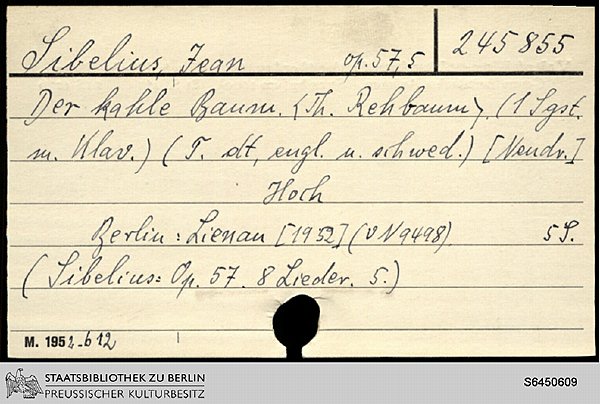 Sibelius, Jean op. 57,5 245 855
Der kahle Baum. <Th. Rehbaum>. (1 Sgst.
m. Klav.) (T. dt, engl. u. schwed.) [Neudr.]
Hoch
Berlin: Lienau [1952] (VN 9498) 5 S.
(Sibelius: Op. 57. 8 Lieder. 5.)
M. 1952.612
STAATSBIBLIOTHEK ZU BERLIN
PREUSSISCHER KULTURBESITZ
S6450609